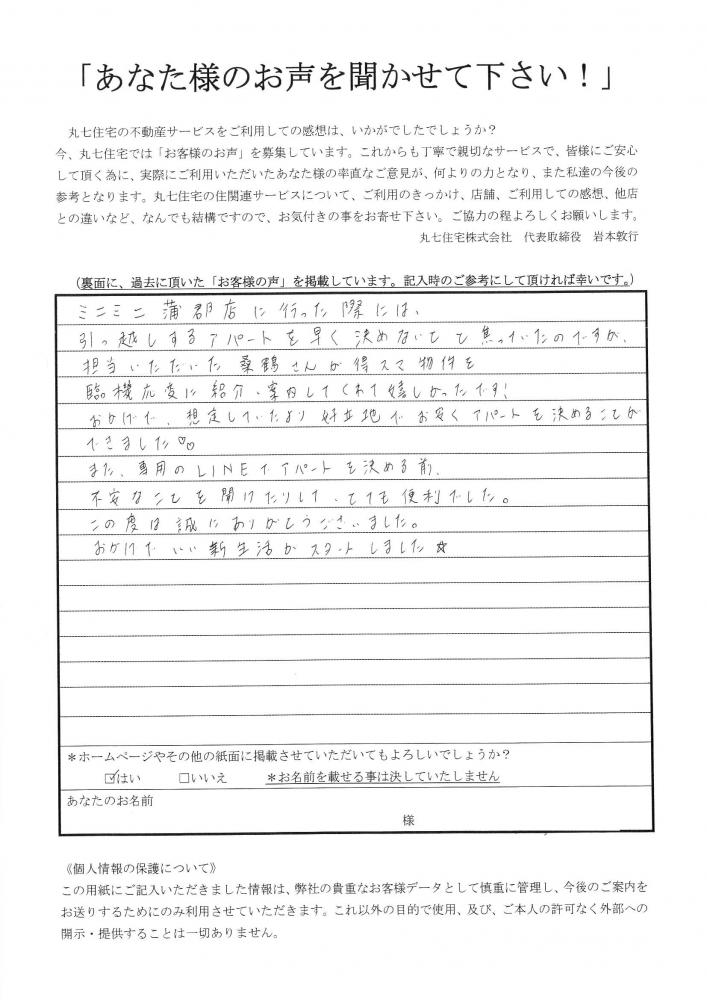 「あなた様のお声を聞かせて下さい！」
丸七住宅の不動産サービスをご利用しての感想は、いかがでしたでしょうか？
今、丸七住宅では「お客様のお声」を募集しています。これからも丁寧で親切なサービスで、皆様にご安心
して頂く為に、実際にご利用いただいたあなた様の率直なご意見が、何よりの力となり、また私達の今後の
参考となります。丸七住宅の住関連サービスについて、ご利用のきっかけ、店舗、ご利用しての感想、他店
との違いなど、なんでも結構ですので、お気付きの事をお寄せ下さい。ご協力の程よろしくお願いします。
丸七住宅株式会社　代表取締役　岩本敦行
（裏面に、過去に頂いた「お客様の声」を掲載しています。記入時のご参考にして頂ければ幸いです。）
ミニミニ 蒲郡店 に 行った 際には、
引っ越しする アパートを 早く 決めないと と 焦っていたのですが、
担当いただいた 桑鶴さんが 得スマ物件を
臨機応変に 紹介・案内してくれて嬉しかったです！
おかげで、想定していたより 好立地で お安く アパートを 決めることが
できました♡♡
また、専用のLINEでアパートを決める前、
不安なことを聞けたりして、とても便利でした。
この度は誠にありがとうございました。
おかげで いい 新生活が スタートしました☆
＊ホームページやその他の紙面に掲載させていただいてもよろしいでしょうか？
☑はい　□いいえ　＊お名前を載せる事は決していたしません
あなたのお名前
様
《個人情報の保護について》
この用紙にご記入いただきました情報は、弊社の貴重なお客様データとして慎重に管理し、今後のご案内を
お送りするためにのみ利用させていただきます。これ以外の目的で使用、及び、ご本人の許可なく外部への
開示・提供することは一切ありません。